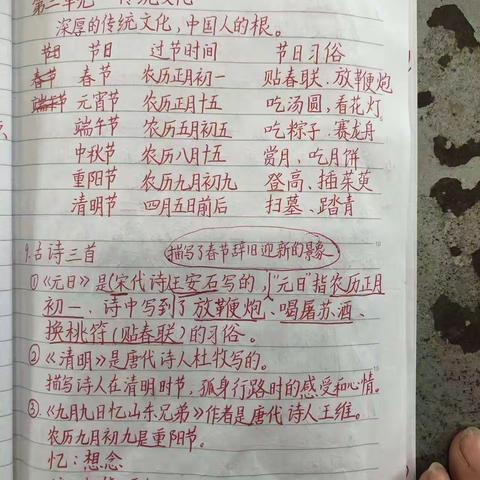 第三单元 传统文化
深厚的传统文化,中国人的根。
节日 节日 过节时间 节日习俗
春节 春节 农历正月初一 贴春联、放鞭炮
端午节 元宵节 农历正月十五 吃汤圆,看花灯
端午节 农历五月初五 吃粽子、赛龙舟
中秋节 农历八月十五 赏月、吃月饼
重阳节 农历九月初九 登高、插茱萸
清明节 四月五日前后 扫墓、踏青
9.古诗三首 描写了春节辞旧迎新的景象
①《元日》是宋代诗王安石写的,“元日”指农历正月
初一、诗中写到了放鞭炮、喝屠苏酒、
换桃符(贴春联)的习俗。
②《清明》是唐代诗人杜牧写的。
描写诗人在清明时节,孤身行路时的感受和心情。
③《九月九日忆山东兄弟》作者是唐代诗人王维。
农历九月初九是重阳节。
忆:想念